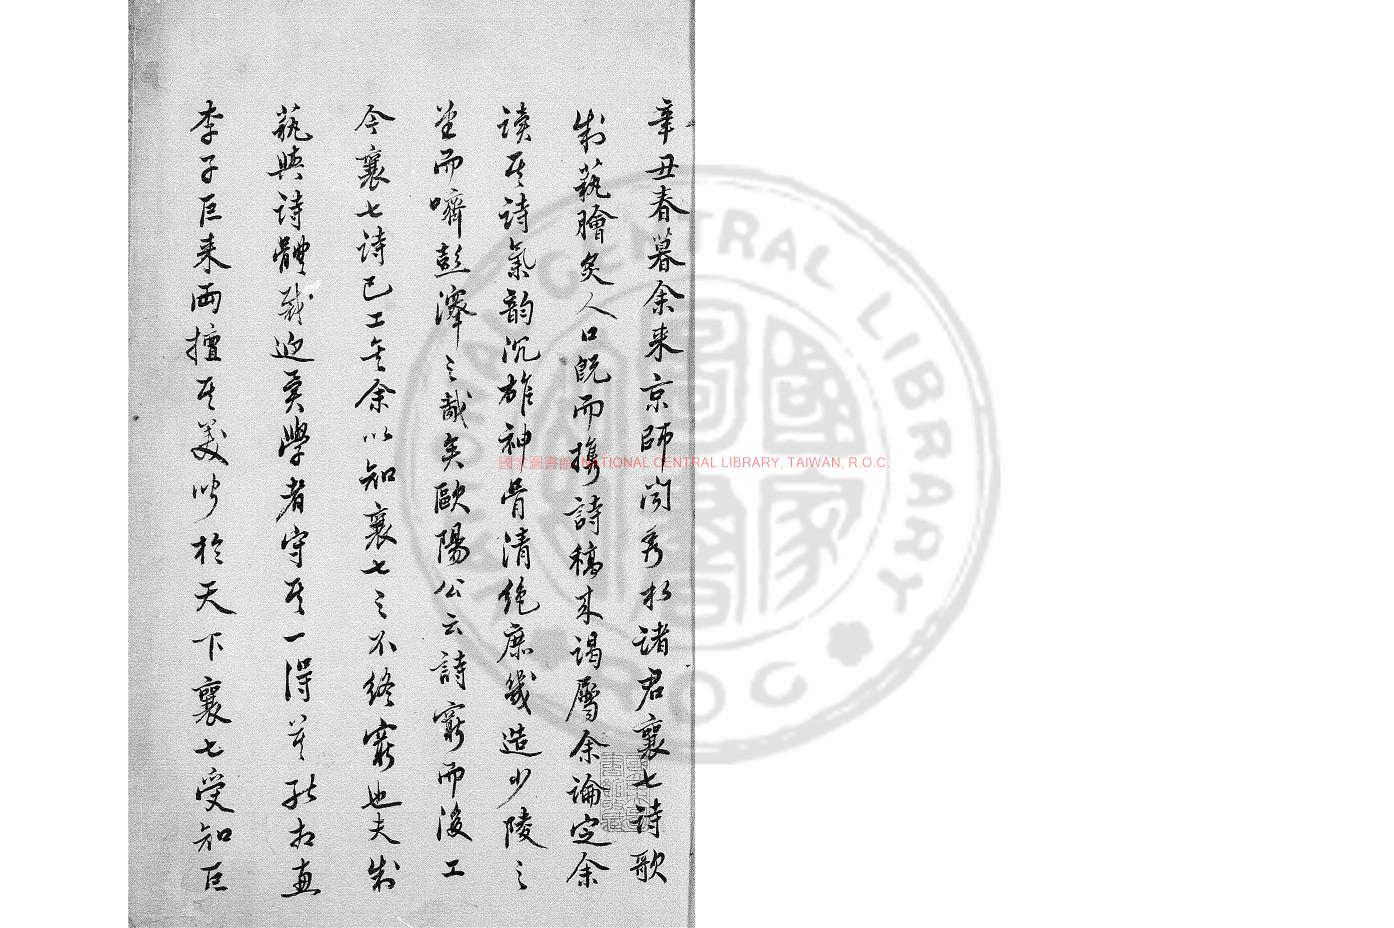 辛丑春暮余來京師閱秀水諸君襄七詩歌
制藝膾炙人口旣而携詩稿來謁屬余論定余
讀其詩氣韵沉雄神骨清絶庶幾造少陵之
堂而嚌彭澤之胾矣歐陽公云詩窮而後工
今襄七詩已工矣余以知襄七之不終窮也夫制
藝與詩體裁迥異學者守其一得若不相直
李子巨來兩擅其美將於天下襄七受知巨
國家圖書館 NATIONAL CENTRAL LIBRARY, TAIWAN, R.O.C.
NATIONAL CENTRAL LIBRARY
ROC